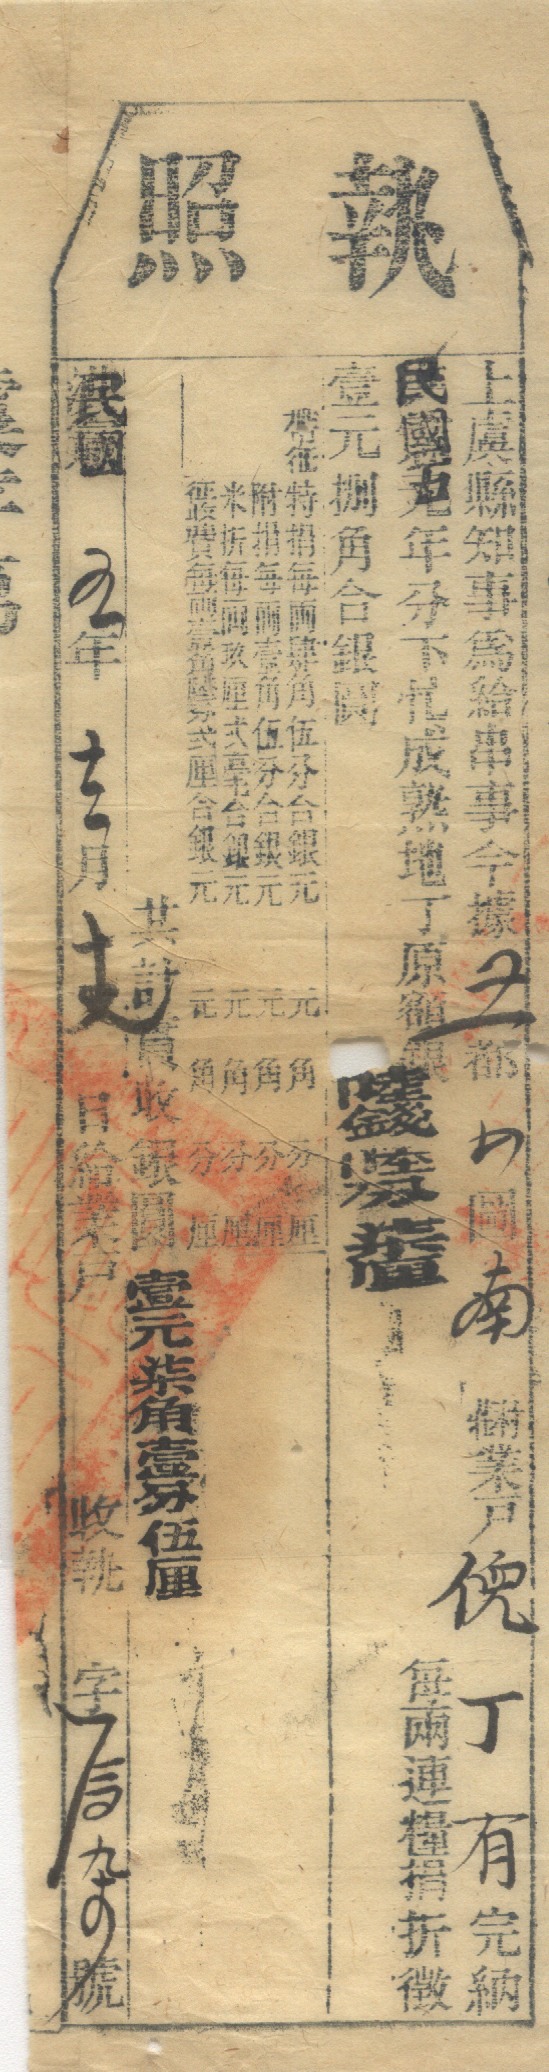 執照
上虞縣知事爲給串事今據 都 圖南 備業戶倪丁有完納
民國五年分下忙成熟地丁原額銀陸錢 分柒厘 每兩連糧捐折徵
壹元捌角合銀圓
帶征特捐每兩肆角伍分合銀元 元角分厘
附捐每兩壹角伍分合銀元 元角分厘
米折每兩玖厘弍毫合銀元 元角分厘
征費每兩壹角 分弍厘合銀元 元角分厘
共計實收銀圓壹元柒角壹分伍厘
民國五年 月 日給業戶 收執 字 號